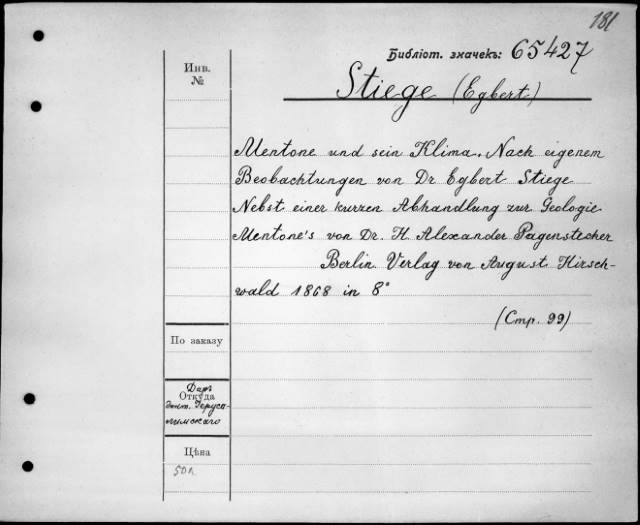 181
Библіот. значекъ: 65427
Инв.
№
Stiege (Egbert)
Mentone und sein Klima. Nach eigenem
Beobachtungen von Dr Egbert Stiege
Nebst einer kurzen Abhandlung zur Geologie
Mentone's von Dr. H. Alexander Pagenstecher
Berlin. Verlag von August Hirsch-
wald 1868 in 8°
(Стр. 99)
По заказу
Даръ
Откуда
докт. Іеруса-
лимскаго
Цѣна
50 к.